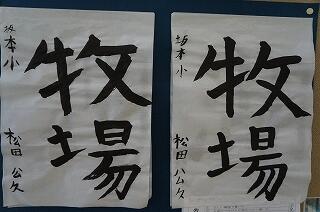 牧場
坂本小
松田 公久
牧場
坂本小
松田 公久